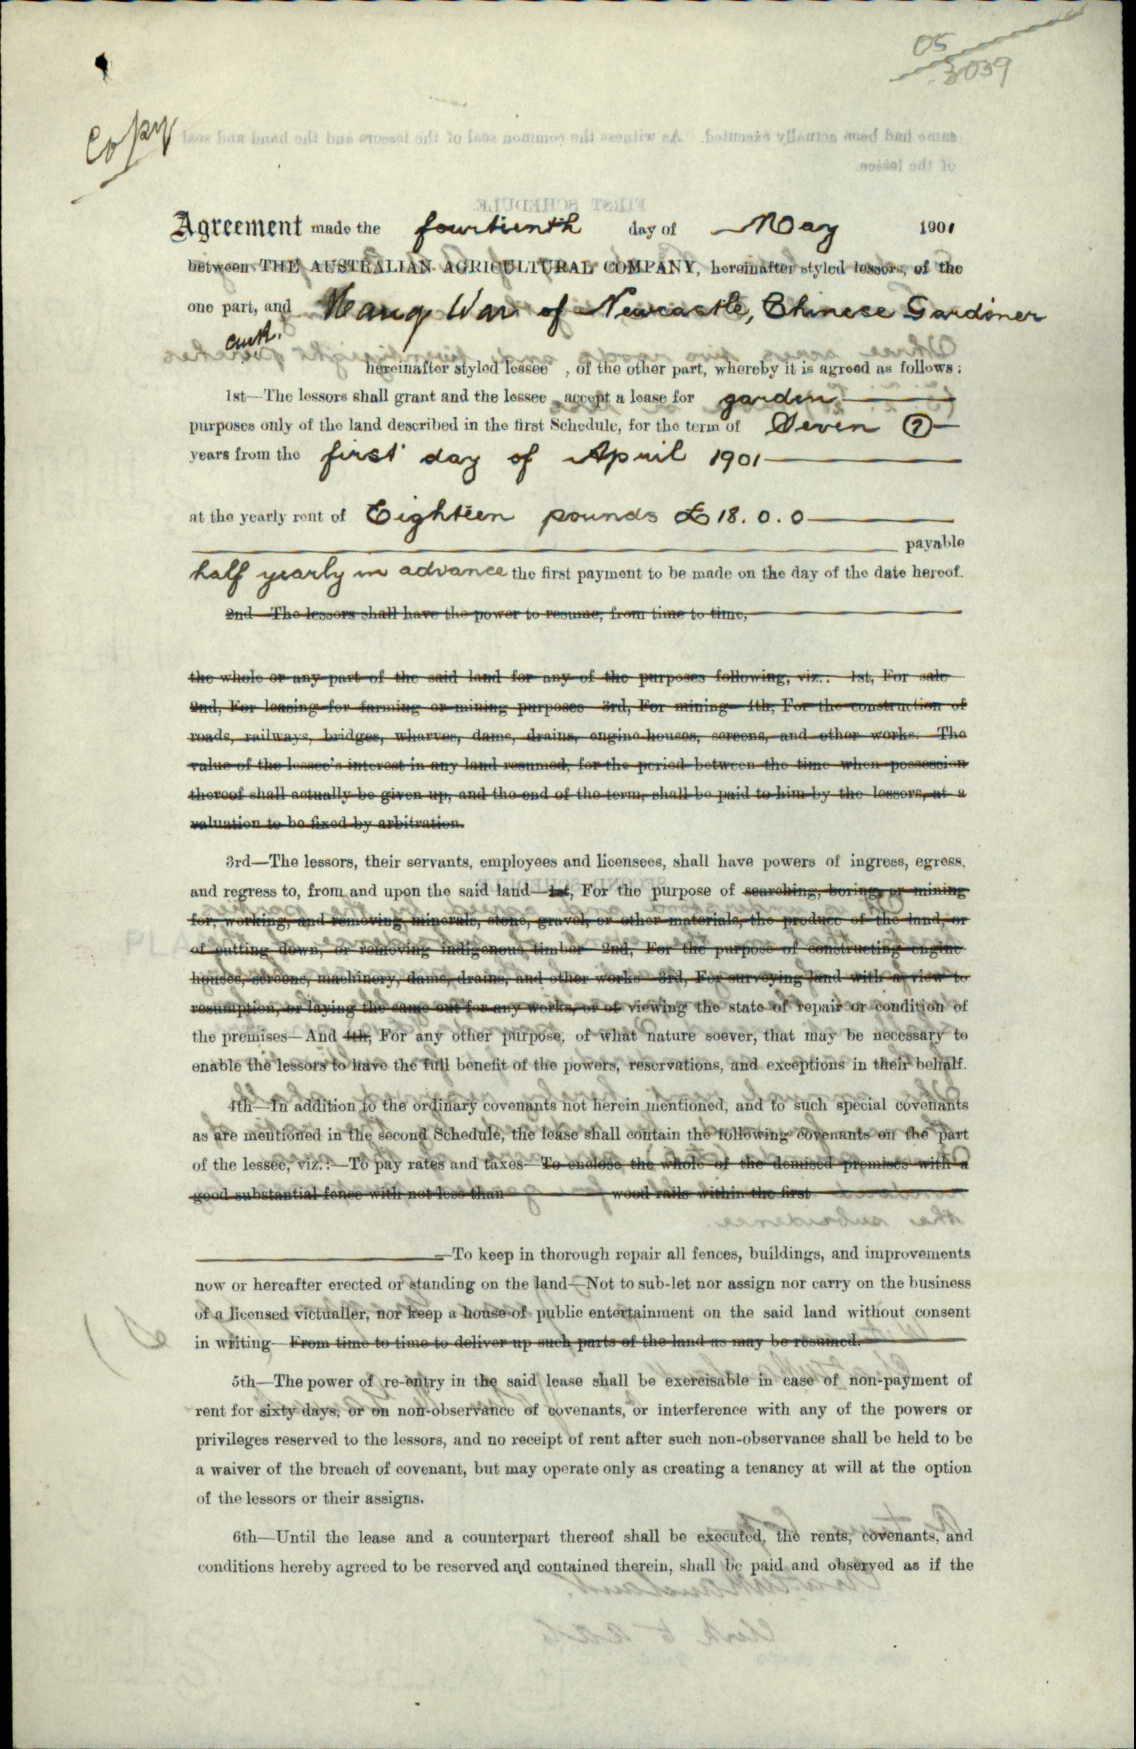 05
3039
Copy
Agreement made the fourteenth day of May 1901
between THE AUSTRALIAN AGRICULTURAL COMPANY, hereinafter styled lessors, of the
one part, and War of Newcastle, Chinese Gardener
hereinafter styled lessee , of the other part, whereby it is agreed as follows:
1st—The lessors shall grant and the lessee accept a lease for garden
purposes only of the land described in the first Schedule, for the term of Seven (7)
years from the first day of April 1901
at the yearly rent of Eighteen pounds £18.0.0
payable
half yearly in advance the first payment to be made on the day of the date hereof.
2nd—The lessors shall have the power to resume, from time to time,
the whole or any part of the said land for any of the purposes following, viz.: 1st, For sale
2nd, For leasing for farming or mining purposes—3rd, For mining—4th, For the construction of
roads, railways, bridges, wharves, dams, drains, engine-houses, screens, and other works. The
value of the lessee's interest in any land resumed, for the period between the time when possession
thereof shall actually be given up, and the end of the term, shall be paid to him by the lessors, at a
valuation to be fixed by arbitration.
3rd—The lessors, their servants, employees and licensees, shall have powers of ingress, egress,
and regress to, from and upon the said land—1st, For the purpose of searching, boring, or mining
for, working, and removing minerals, stone, gravel, or other materials, the produce of the land, or
of cutting down, or removing indigenous timber—2nd, For the purpose of constructing engine
houses, screens, machinery, dams, drains, and other works—3rd, For surveying land with a view to
resumption, or laying the same out for any works, or of viewing the state of repair or condition of
the premises—And 4th, For any other purpose, of what nature soever, that may be necessary to
enable the lessors to have the full benefit of the powers, reservations, and exceptions in their behalf.
4th—In addition to the ordinary covenants not herein mentioned, and to such special covenants
as are mentioned in the second Schedule, the lease shall contain the following covenants on the part
of the lessee, viz.:—To pay rates and taxes—To enclose the whole of the demised premises with a
good substantial fence with not less than wood rails within the first
—To keep in thorough repair all fences, buildings, and improvements
now or hereafter erected or standing on the land—Not to sub-let nor assign nor carry on the business
of a licensed victualler, nor keep a house of public entertainment on the said land without consent
in writing—From time to time to deliver up such parts of the land as may be resumed.
5th—The power of re-entry in the said lease shall be exercisable in case of non-payment of
rent for sixty days, or on non-observance of covenants, or interference with any of the powers or
privileges reserved to the lessors, and no receipt of rent after such non-observance shall be held to be
a waiver of the breach of covenant, but may operate only as creating a tenancy at will at the option
of the lessors or their assigns.
6th—Until the lease and a counterpart thereof shall be executed, the rents, covenants, and
conditions hereby agreed to be reserved and contained therein, shall be paid and observed as if the